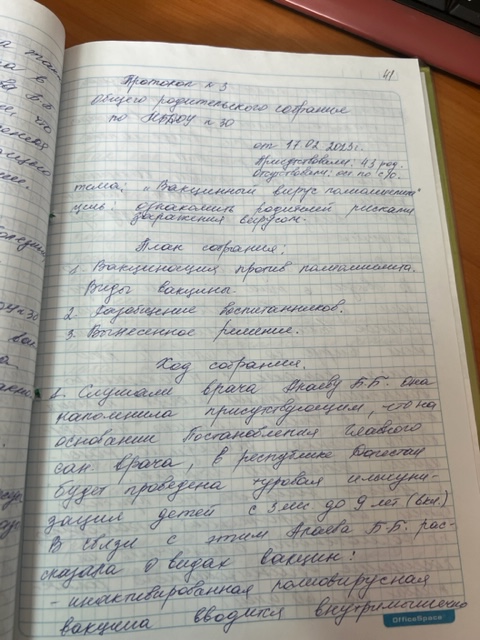 41
Протокол № 3
общего родительского собрания
по МБДОУ № 30
от 17.02 2023г.
Присутствовали: 43 род.
Отсутствовали: от по с/о.
тема: "Вакцинный вирус полиомиелита"
цель: ознакомить родителей рисками
заражения вирусом.
План собрания:
1. Вакцинация против полиомиелита.
Виды вакцины.
2. Разобщение воспитанников.
3. Вынесенное решение.
Ход собрания.
1. Слушали врача Б.Б. она
напомнила присутствующим, что на
основании Постановления Главного
сан врача, в республике Дагестан
будет проведена туровая иммуни-
зация детей с 3 мес до 9 лет (вкл.)
В связи с этим Б.Б. рас-
сказала о видах вакцин:
- инактивированная полиовирусная
вакцина вводится внутримышечно
OfficeSpace